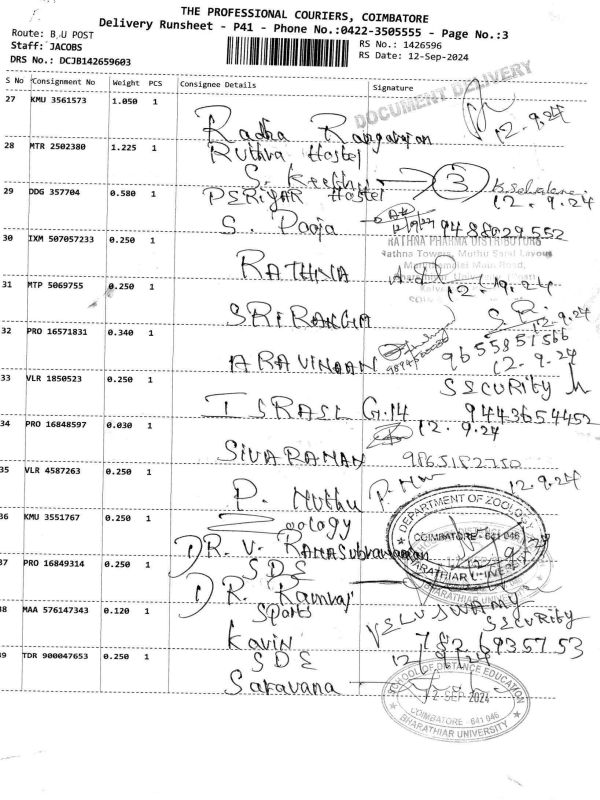 THE PROFESSIONAL COURIERS, COIMBATORE
Delivery Runsheet - P41 - Phone No.:0422-3505555 - Page No.:3
Route: B,U POST
Staff: JACOBS
DRS No.: DCJB142659603
RS No.: 1426596
RS Date: 12-Sep-2024
S No Consignment No Weight PCS Consignee Details Signature
DOCUMENT DELIVERY
27 KMU 3561573 1.050 1
Radha Rangarajan 12.9.24
28 MTR 2502380 1.225 1 Ruthra Hostel
S. Keerthi 3
29 DDG 357704 0.580 1 PERIYAR Hostel 12.9.24
S. Pooja 9488029552
30 IXM 507057233 0.250 1
RATHNA PHARMA DISTRIBUTORS
Rathna Towers,
RATHNA 12.9.24
31 MTP 5069755 0.250 1
SRIRANGA S.R. 12.9.24
32 PRO 16571831 0.340 1 9655851566
ARAVINDAN 12.9.24
33 VLR 1850523 0.250 1 SECURITY
ISRAEL G.14 9443654452
34 PRO 16848597 0.030 1 12.9.24
SIVARAMAN 9865182750
35 VLR 4587263 0.250 1
P. Muthu 12.9.24
36 KMU 3551767 0.250 1 Zoology
DEPARTMENT OF ZOOLOGY
COIMBATORE - 641 046
BHARATHIAR UNIVERSITY
DR. V. Ramasubramanian
37 PRO 16849314 0.250 1 SDE
DR. Ramraj
38 MAA 576147343 0.120 1 Sports
VELUSWAMY
SECURITY
Kavin 7826935753
39 TDR 900047653 0.250 1 SDE 12/9/24
Saravana
SCHOOL OF DISTANCE EDUCATION
12 SEP 2024
COIMBATORE - 641 046
BHARATHIAR UNIVERSITY